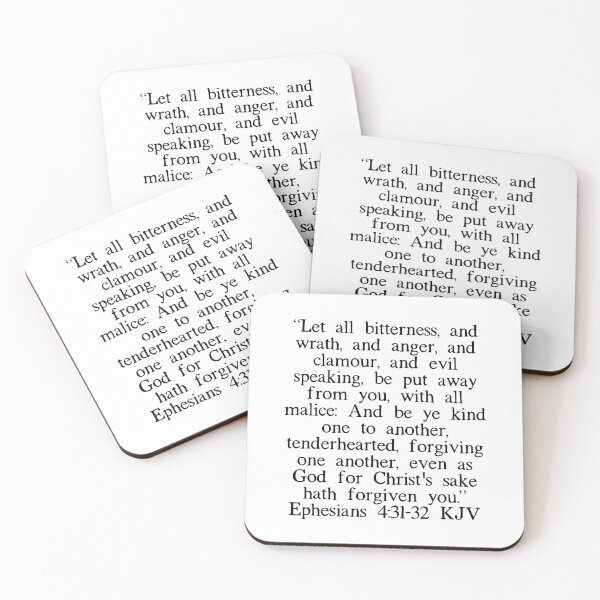 “Let all bitterness, and
wrath, and anger, and
clamour, and evil
speaking, be put away
from you, with all
malice: And be ye
another,
“Let all bitterness, and
wrath, and anger, and
clamour, and evil
speaking, be put away
from you, with all
malice: And be ye kind
one to another,
tenderhearted, forgiving
one another, even as
God for sake
“Let all bitterness, and
wrath, and anger, and
clamour, and evil
speaking, be put away
from you, with all
malice: And be ye kind
one to another,
tenderhearted,
one another,
God for
hath
Ephesians
“Let all bitterness, and
wrath, and anger, and
clamour, and evil
speaking, be put away
from you, with all
malice: And be ye kind
one to another,
tenderhearted, forgiving
one another, even as
God for Christ's sake
hath forgiven you.”
Ephesians 4:31-32 KJV